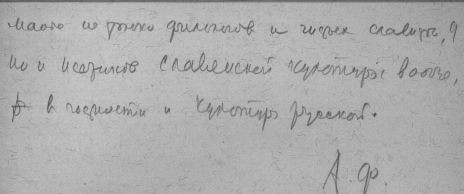 мало не только филологов и чистых славистов,
но и историков славянской культуры вообще,
в частности и культуры русской.
А. Ф.